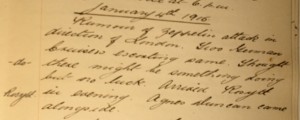 at 6 pm
January 4th 1916
Rumour of Zeppelin attack in
direction of London. Two German
Cruisers escorting same. Thought
-do- there might be something doing
but no luck. Arrived Rosyth
Rosyth in evening. Agnes Duncan came
alongside.